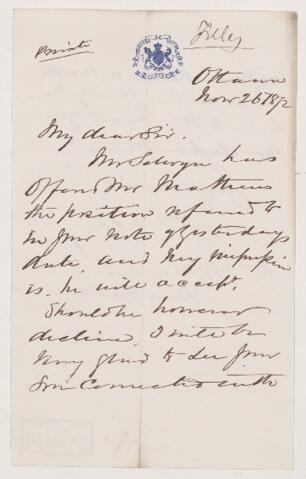 Tilley
Private
Ottawa
Nov 26 1872
My dear Sir.
Mr Selwyn has
Offered Mr Mathews
the position referred to
in your note of yesterdays
date, and my impression
is he will accept.
Should he however
decline, I will be
very glad to see your
Son connected with